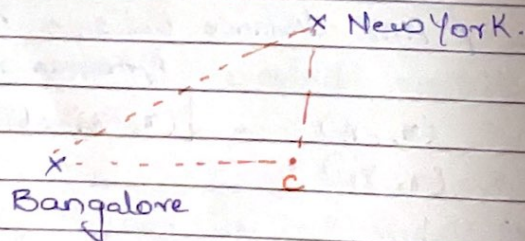 x New York.
x
C
Bangalore